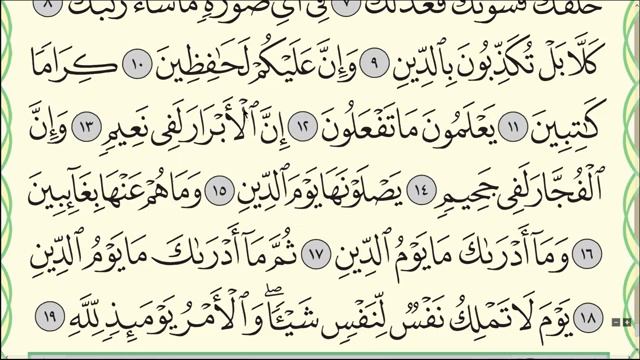 خَلَقَكَ فَسَوَّىٰكَ فَعَدَلَكَ ٧ فِىٓ أَىِّ صُورَةٍ مَّا شَآءَ رَكَّبَكَ ٨
كَلَّا بَلْ تُكَذِّبُونَ بِٱلدِّينِ ٩ وَإِنَّ عَلَيْكُمْ لَحَٰفِظِينَ ١٠ كِرَامًا
كَٰتِبِينَ ١١ يَعْلَمُونَ مَا تَفْعَلُونَ ١٢ إِنَّ ٱلْأَبْرَارَ لَفِى نَعِيمٍ ١٣ وَإِنَّ
ٱلْفُجَّارَ لَفِى جَحِيمٍ ١٤ يَصْلَوْنَهَا يَوْمَ ٱلدِّينِ ١٥ وَمَا هُمْ عَنْهَا بِغَآئِبِينَ
١٦ وَمَآ أَدْرَىٰكَ مَا يَوْمُ ٱلدِّينِ ١٧ ثُمَّ مَآ أَدْرَىٰكَ مَا يَوْمُ ٱلدِّينِ
١٨ يَوْمَ لَا تَمْلِكُ نَفْسٌ لِّنَفْسٍ شَيْـًٔا ۖ وَٱلْأَمْرُ يَوْمَئِذٍ لِّلَّهِ ١٩